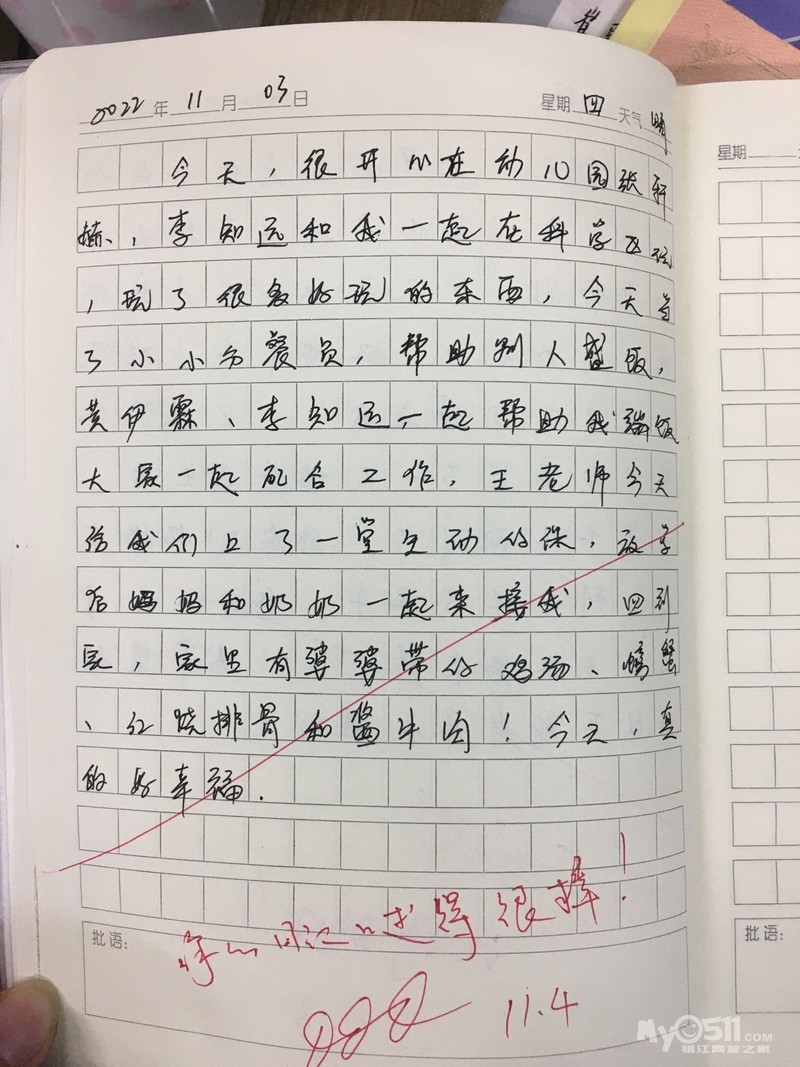 2022年 11月 03日 星期 四 天气 晴
今天,很开心在幼儿园张轩
、李知远和我一起在科学区玩
,玩了很多好玩的东西,今天当
了小小分餐员,帮助别人盛饭,
黄伊霖、李知远一起帮助我端饭
大家一起配合工作,王老师今天
给我们上了一堂生动的课,放学
后妈妈和奶奶一起来接我,回到
家,家里有婆婆带的鸡汤、螃蟹
、红烧排骨和酱牛肉!今天,真
的好幸福.
批语:
口述得很棒!
11.4
星期
批语:
My0511.COM
镇江网友之家